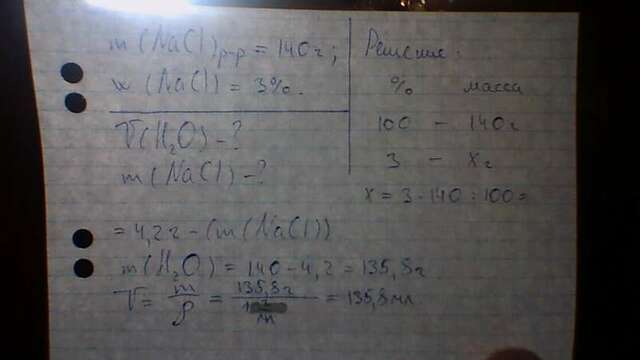 m(NaCl)р-р = 140г;
w(NaCl) = 3%.
V(H₂O) - ?
m(NaCl) - ?
Решение:
% масса
100 - 140г
3 - xг
x = 3·140:100=
= 4,2г - (m(NaCl))
m(H₂O) = 140-4,2 = 135,8г
V = m/ρ = 135,8г/1 г/мл = 135,8мл